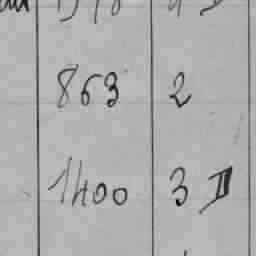 863 2
1400 3 II